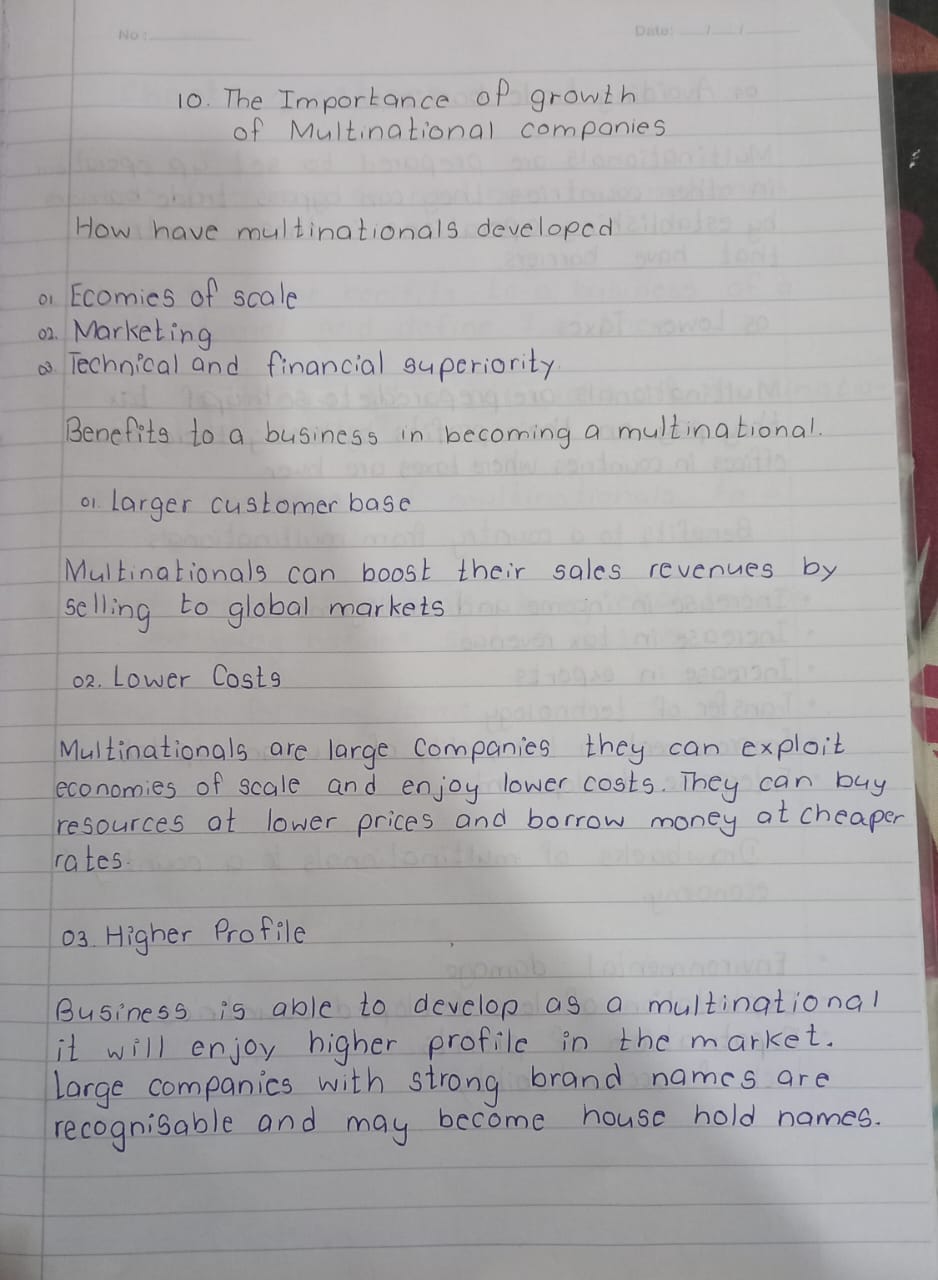 No:
Date: / /
10. The Importance of growth
of Multinational companies
How have multinationals developed
01. Ecomies of scale
02. Marketing
03 Technical and financial superiority.
Benefits to a business in becoming a multinational.
01. Larger customer base
Multinationals can boost their sales revenues by
selling to global markets
02. Lower Costs
Multinationals are large companies they can exploit
economies of scale and enjoy lower costs. They can buy
resources at lower prices and borrow money at cheaper
rates.
03. Higher Profile
Business is able to develop as a multinational
it will enjoy higher profile in the market.
Large companies with strong brand names are
recognisable and may become house hold names.